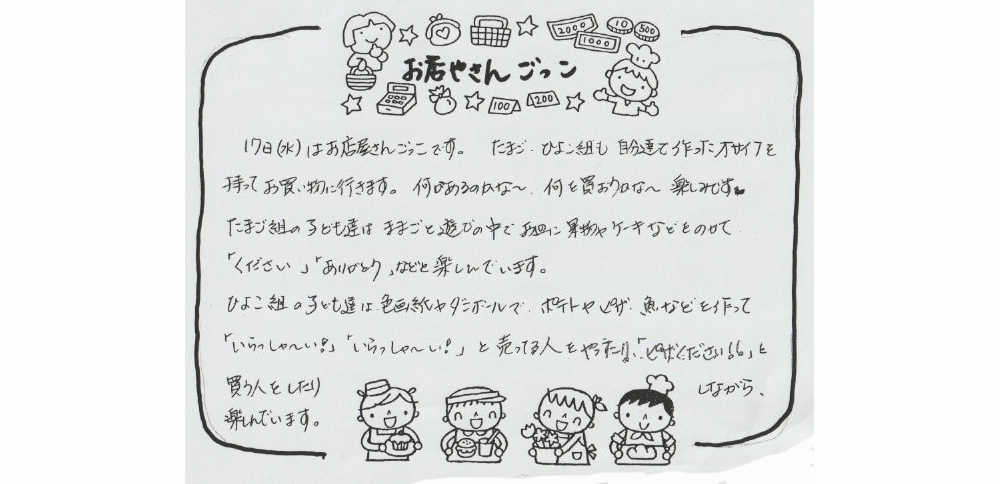 2000
1000
10
500
お店やさんごっこ
100
200
17日(水)はお店屋さんごっこです。 たまご・ひよこ組も自分達で作ったオサイフを
持ってお買い物に行きます。何があるのかな〜、何を買おうかな〜 楽しみです。
たまご組の子ども達は ままごと遊びの中でお皿に果物やケーキなどをのせて
「ください」「ありがとう」などと楽しんでいます。
ひよこ組の子ども達は色画紙やダンボールで、ポテトやピザ、魚などを作って
「いらっしゃ〜い!」「いらっしゃ〜い!」と売ってる人をやったり、「ピザください!!」と
買う人をしたり しながら、
楽しんでいます。